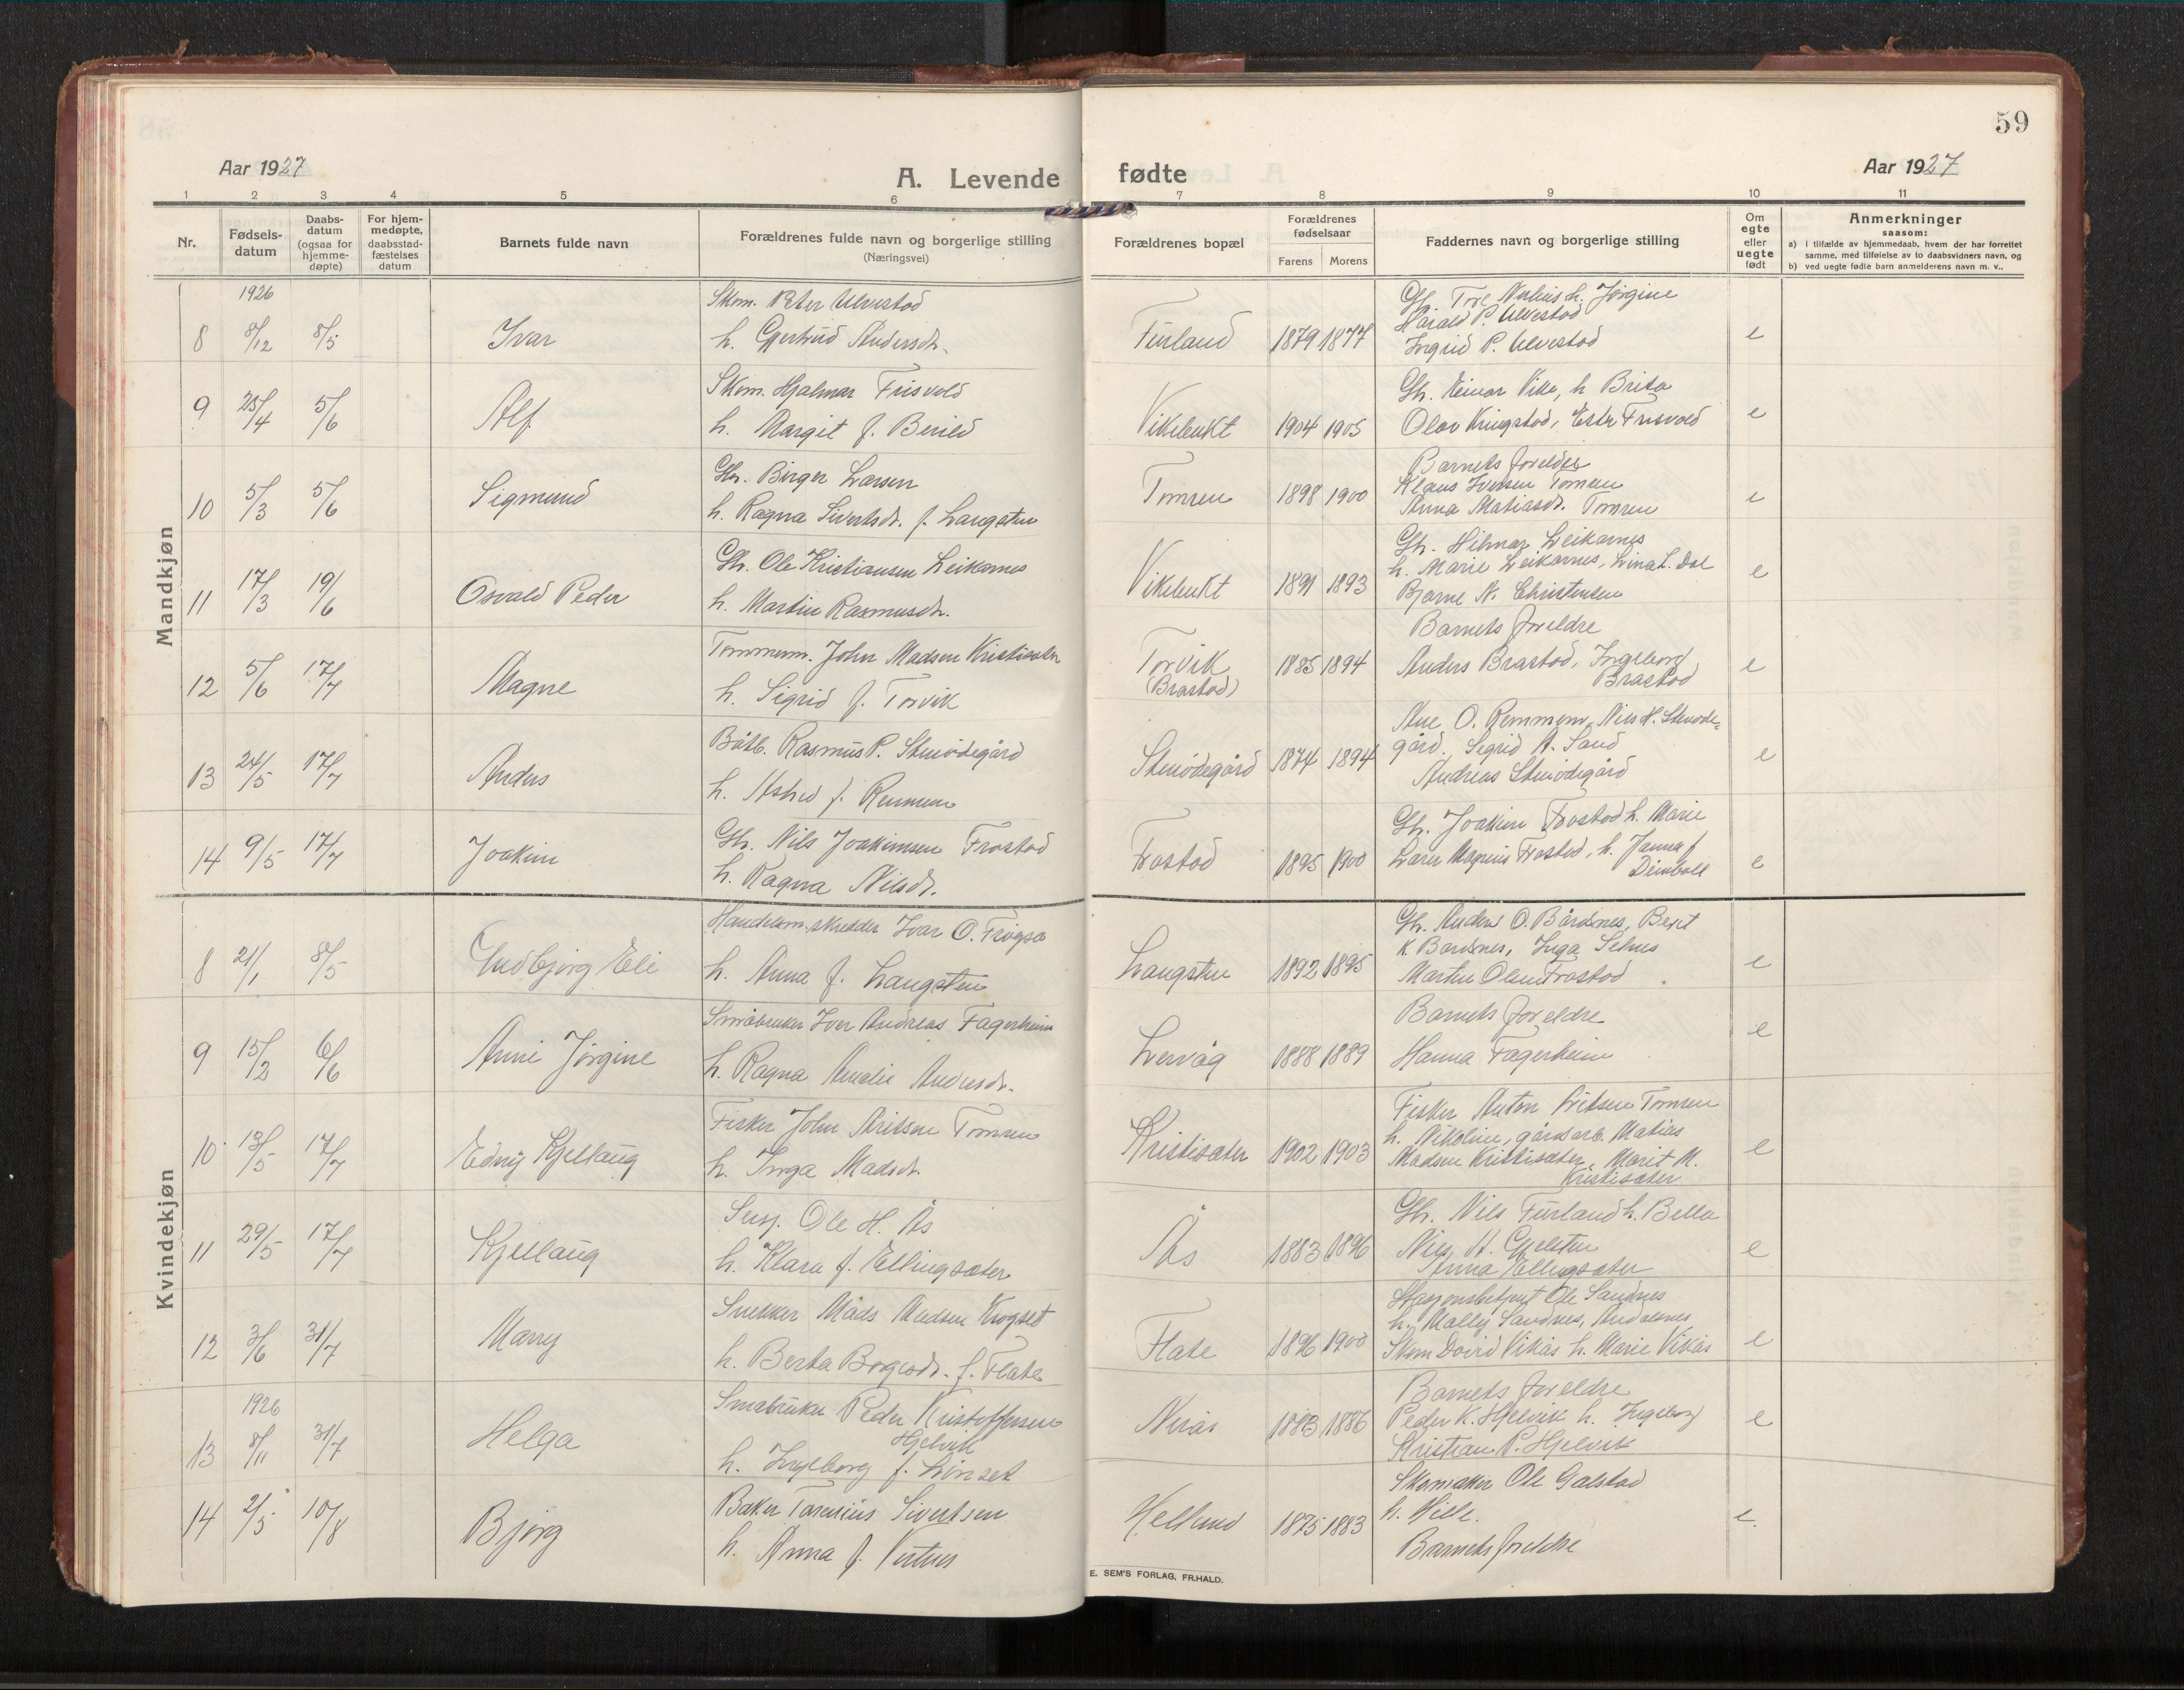 59
Aar 1927
A. Levende fødte
Aar 1927
1 2 3 4 5 6 7 8 9 10 11
Nr.
Fødsels-
datum
Daabs-
datum
(ogsaa for
hjemme-
døpte)
For hjem-
medøpte,
daabsstad-
fæstelses
datum
Barnets fulde navn
Forældrenes fulde navn og borgerlige stilling
(Næringsvei)
Forældrenes bopæl
Forældrenes
fødselsaar
Farens Morens
Faddernes navn og borgerlige stilling
Om
egte
eller
uegte
født
Anmerkninger
saasom:
a) i tilfælde av hjemmedaab, hvem der har forrettet
samme, med tilføielse av to daabsvidners navn, og
b) ved uegte fødte barn anmelderens navn m. v..
Mandkjøn
1926
8 8/12 8/5 Ivar
Skom. Peter Ulvestad
h. Gjertrud Andersdt.
Furland 1879 1877
Gh. Tore h. Jørgine
Harald P. Ulvestad
Ingrid P. Ulvestad
e
9 25/4 5/6 Alf
Skom. Hjalmar Frisvold
h. Margit f. Berild
Vikebukt 1904 1905
Gh. Einar Vike, h Brita
Olav Kringstad, Ester Frisvold
e
10 5/3 5/6 Sigmund
Gh. Birger Larsen
h. Ragna Sivertsdt. f. Langsten
Tomren 1898 1900
Barnets foreldre
Klaus Iversen Tomren
Anna Matiasdt. Tomren
e
11 17/3 19/6 Osvald Peder
Gh. Ole Kristiansen Leikarnes
h. Martin Rasmusdt.
Vikebukt 1891 1893
Gh. Hilmar Leikarnes
h. Marie Leikarnes, Lina L. Dal
Bjarne N. Christensen
e
12 5/6 17/7 Magne
Tømmerm. John Madsen Kristisæter
h. Sigrid f. Torvik
Torvik
(Brastad)
1885 1894
Barnets foreldre
Anders Brastad, Ingeborg
Brastad
e
13 24/5 17/7 Anders
Båtb. Rasmus P. Stenødegård
h. Astrid f. Remmem
Stenødegård 1874 1894
Ane O. Remmem, Nils H. Stenøde-
gård, Sigrid A. Sand
Andreas Stenødegård
e
14 9/5 17/7 Joakim
Gh. Nils Joakimsen Frostad
h. Ragna Nilsdt.
Frostad 1895 1900
Gh. Joakim Frostad h. Marie
Lars Magnus Frostad, h. Janna f
e
Kvindekjøn
8 21/1 8/5 Gudbjørg Eli
Handelsm. skredder Ivar O. Frøysa
h. Anna f. Langsten
Langsten 1892 1895
Gh. Anders O. Bårdsnes, Berit
K Bardsnes, Inga Selnes
Martin Olsen Frostad
e
9 15/2 6/6 Anni Jørgine
Småbruker Iver Andreas Fagerheim
h. Ragna Amalie Andersdt.
Lervåg 1888 1889
Barnets foreldre
Hanna Fagerheim
e
10 13/5 17/7 Edny Kjellaug
Fisker John Aritsen Tomren
h. Inga Madsdt.
Kristisæter 1902 1903
Fisker Anton Aritsen Tomren
h. Nikoline, gårdsarb. Matias
Madsen Kristisæter, Marit M.
Kristisæter
e
11 29/5 17/7 Kjellaug
Ole H. Ås
h. Klara f. Ellingsæter
Ås 1883 1896
Gh. Nils Furland h. Bella
Nils H. Gjelsten
Anna Ellingsæter
e
12 3/6 31/7 Marry
Snekker Mads Madsen Krogset
h. Berta f. Flate
Flate 1896 1900
Stasjonsbetjent Ole Sandnes
h. Mally Sandnes, Åndalsnes
Skom David Vikås h. Marie Vikås
e
1926
13 8/11 31/7 Helga
Småbruker Peder Kristoffersen
Hjelvik
h. Ingeborg f. Lønset
Nerås 1883 1886
Barnets foreldre
Peder K. Hjelvik h. Ingeborg
Kristian P. Hjelvik
e
14 2/5 10/8 Bjørg
Baker Sivertsen
h. Anna f. Vestnes
Helland 1875 1883
Skomaker Ole Galstad
h. Hilda
Barnets foreldre
e.
E. SEM'S FORLAG, FR.HALD.